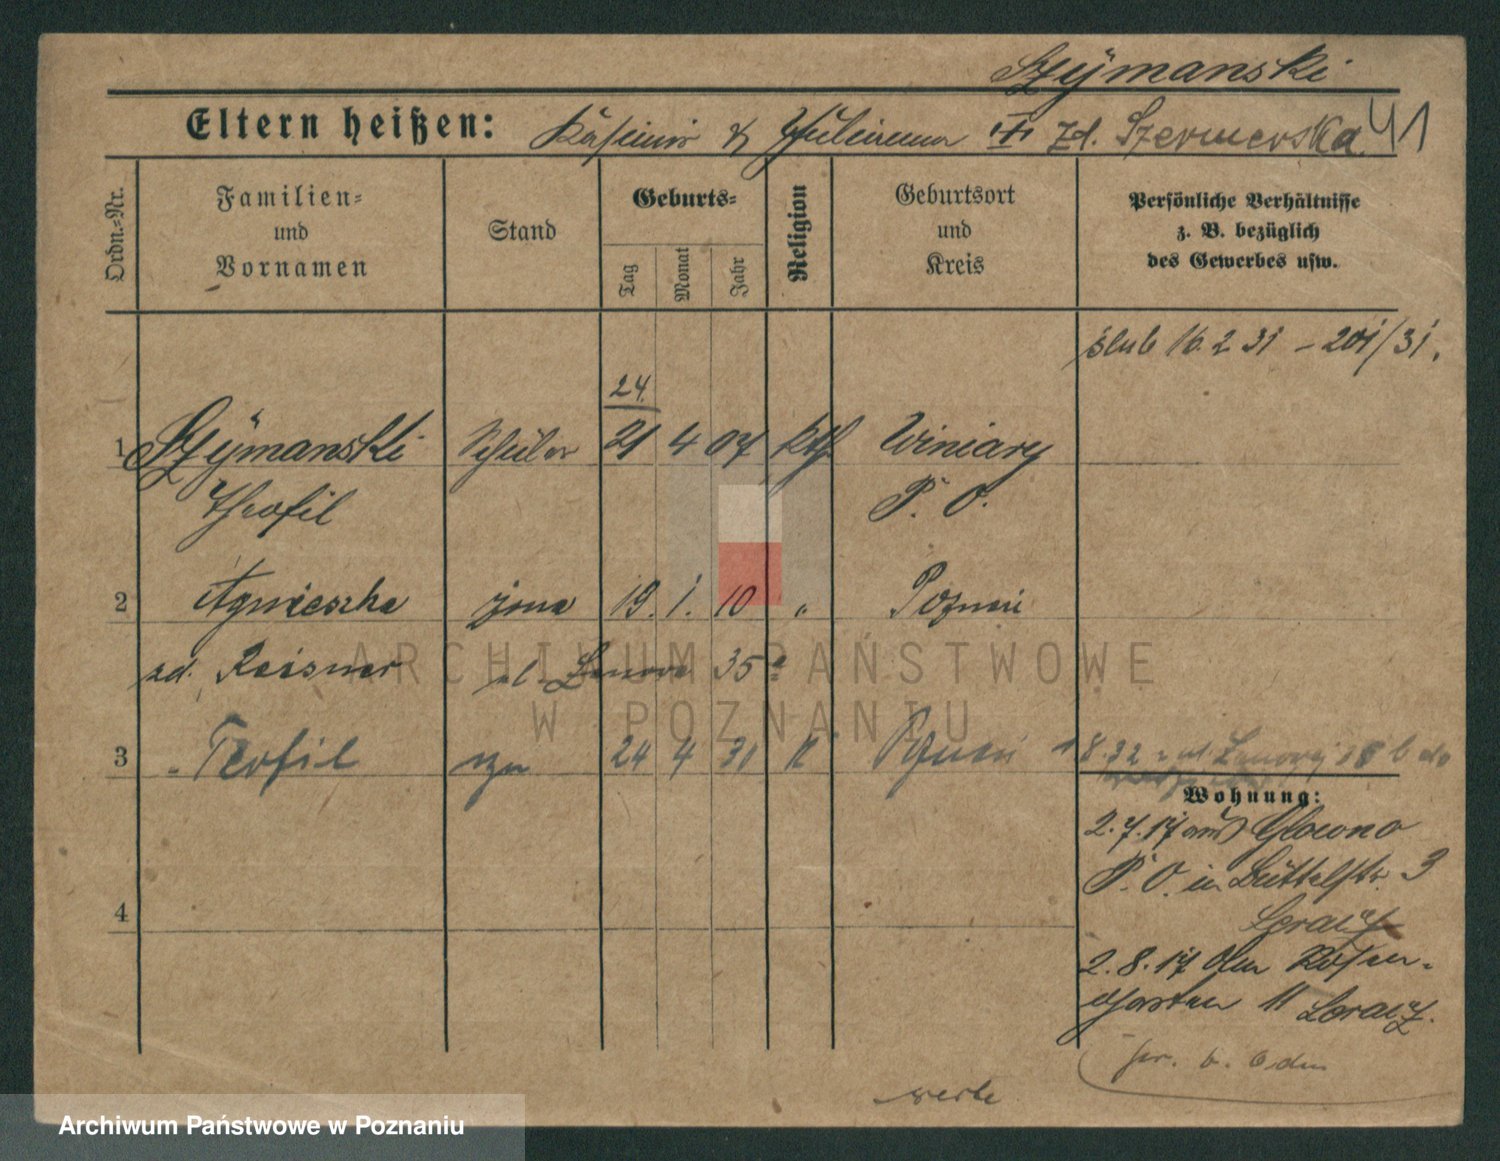 Szÿmanski
Eltern heißen: Kasimir & Julianna zd. Szermerska 41
Ordn.-Nr.
Familien-
und
Vornamen
Stand
Geburts-
Tag
Monat
Jahr
Religion
Geburtsort
und
Kreis
Persönliche Verhältnisse
z. B. bezüglich
des Gewerbes usw.
ślub 16.2.31 – 201/31.
24.
1 Szÿmanski Schüler 21 4 07 kth. Winiary
Theofil P. O.
2 Agnieszka żona 19. 1. 10 " Poznań
zd. Reisner 35
3 Teofil syn 24 4 31 k Poznań
8.32
Wohnung:
2.7.17 aus Glowno
P. O. in Büttelstr. 3
2.8.17 Am Rosen-
garten 11
4
ARCHIWUM PAŃSTWOWE
W POZNANIU
Archiwum Państwowe w Poznaniu